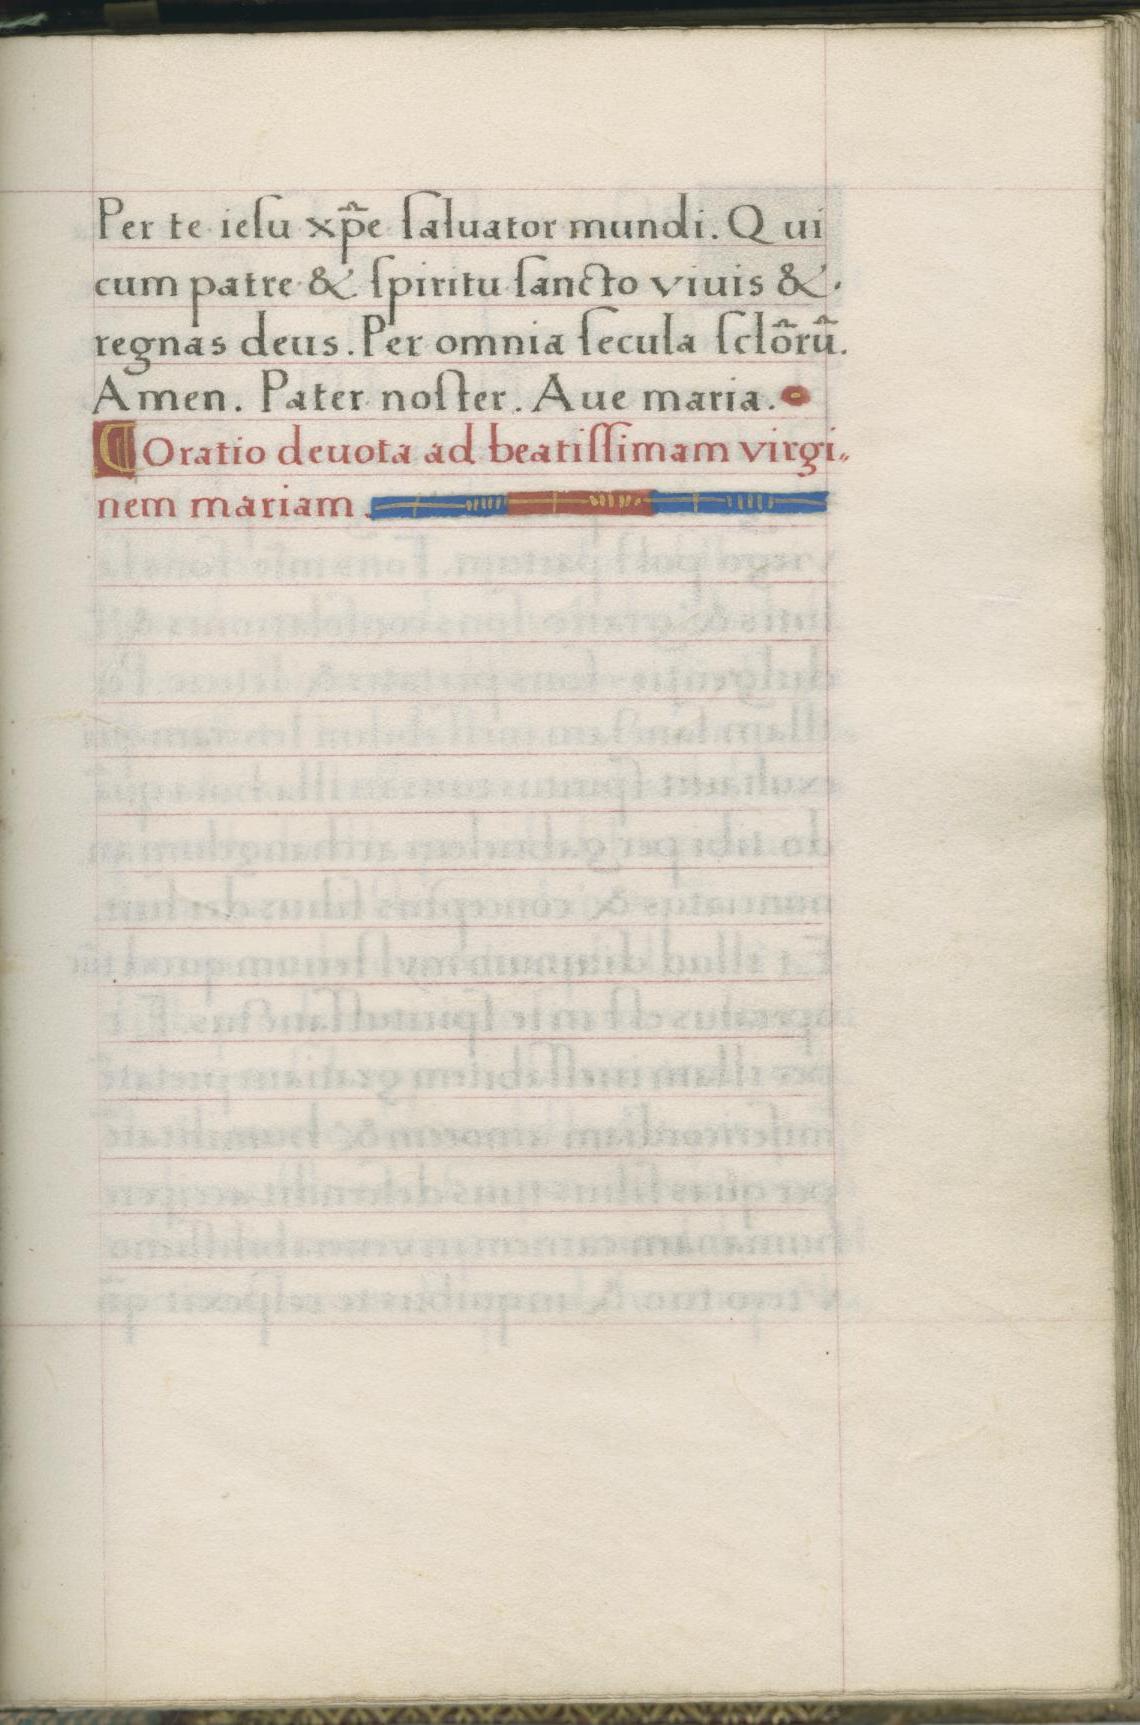 Per te ieſu xp̃e ſaluator mundi. Qui
cum patre & ſpiritu ſancto viuis &
regnas deus. Per omnia ſecula ſclõrũ.
Amen. Pater noſter. Aue maria.
Oratio deuota ad beatiſſimam virgi„
nem mariam.